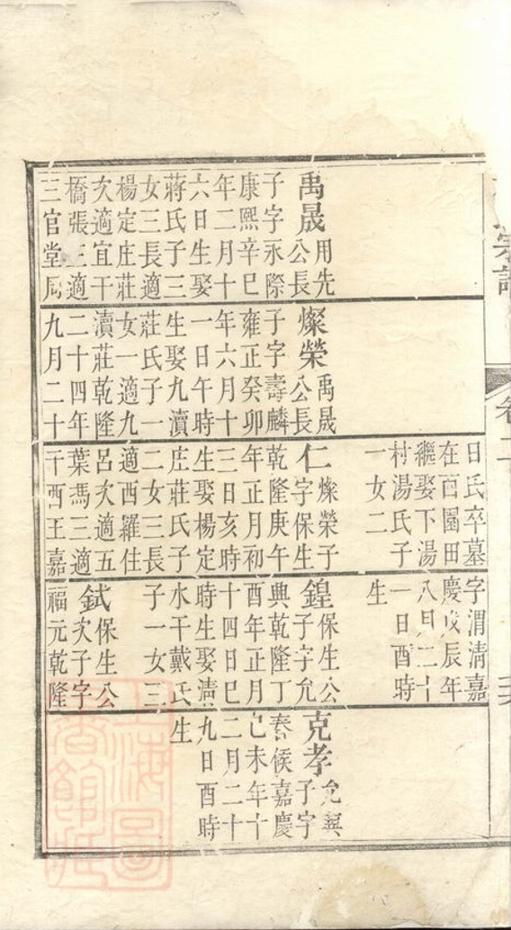 宗譜
卷二
禹晟用先
公長
子字永際
康熙辛巳
年二月十
六日生娶
蔣氏子三
女三長適
楊定庄莊
次適宜干
橋張三適
三官堂周
燦榮禹晟
公長
子字壽麟
雍正癸卯
年六月十
一日午時
生娶九瀆
莊氏子一
女一適九
瀆莊乾隆
二十四年
九月二十
日氏卒墓
在百園田
繼娶下湯
村湯氏子
一女二
仁燦榮子
字保生
乾隆庚午
年正月初
三日亥時
生娶楊定
庄莊氏子
二女三長
適西羅住
呂次適五
葉馮三適
干西王嘉
字渭清嘉
慶戊辰年
八月二十
一日酉時
生
鍠保生公
子字允
典乾隆丁
酉年正月
十四日巳
時生娶清
水干戴氏
子一女三
鉽保生公
次子字
福元乾隆
克孝允典
子字
春候嘉慶
己未年十
二月二十
九日酉時
生
上海圖書館藏